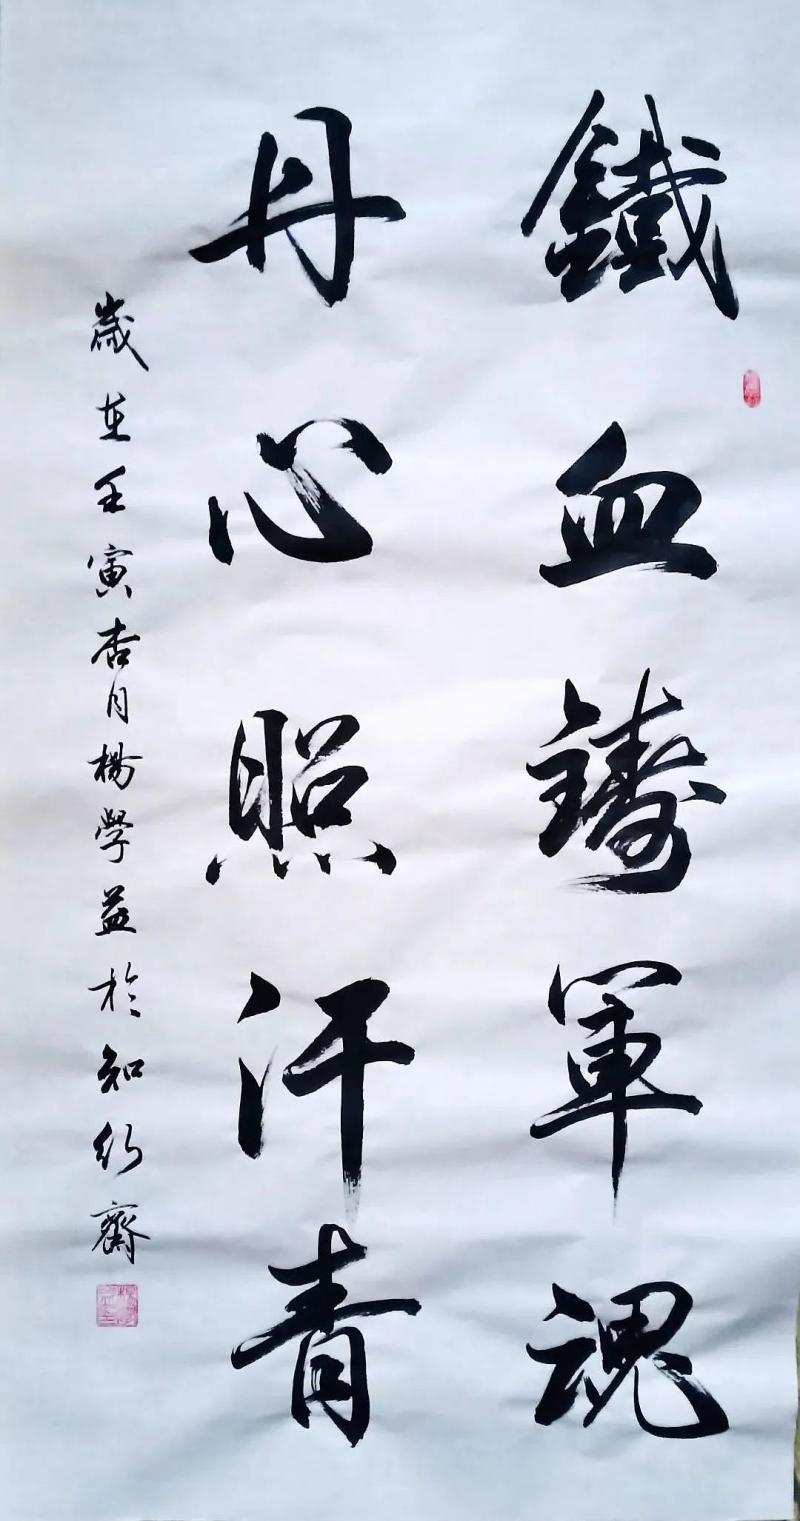 鐵血鑄軍魂
丹心照汗青
歲在壬寅杏月楊學益於知行齋